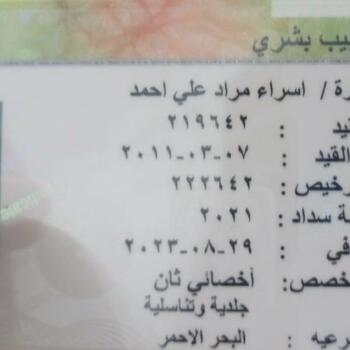 يب بشري
رة / اسراء مراد علي احمد
يد : ٢١٩٦٤٢
القيد : ٢٠١١-٠٣-٠٧
رخيص : ٢٢٢٦٤٢
ة سداد : ٢٠٢١
في : ٢٠٢٣-٠٨-٢٩
خصص : أخصائي ثان
جلدية وتناسلية
رعيه : البحر الاحمر